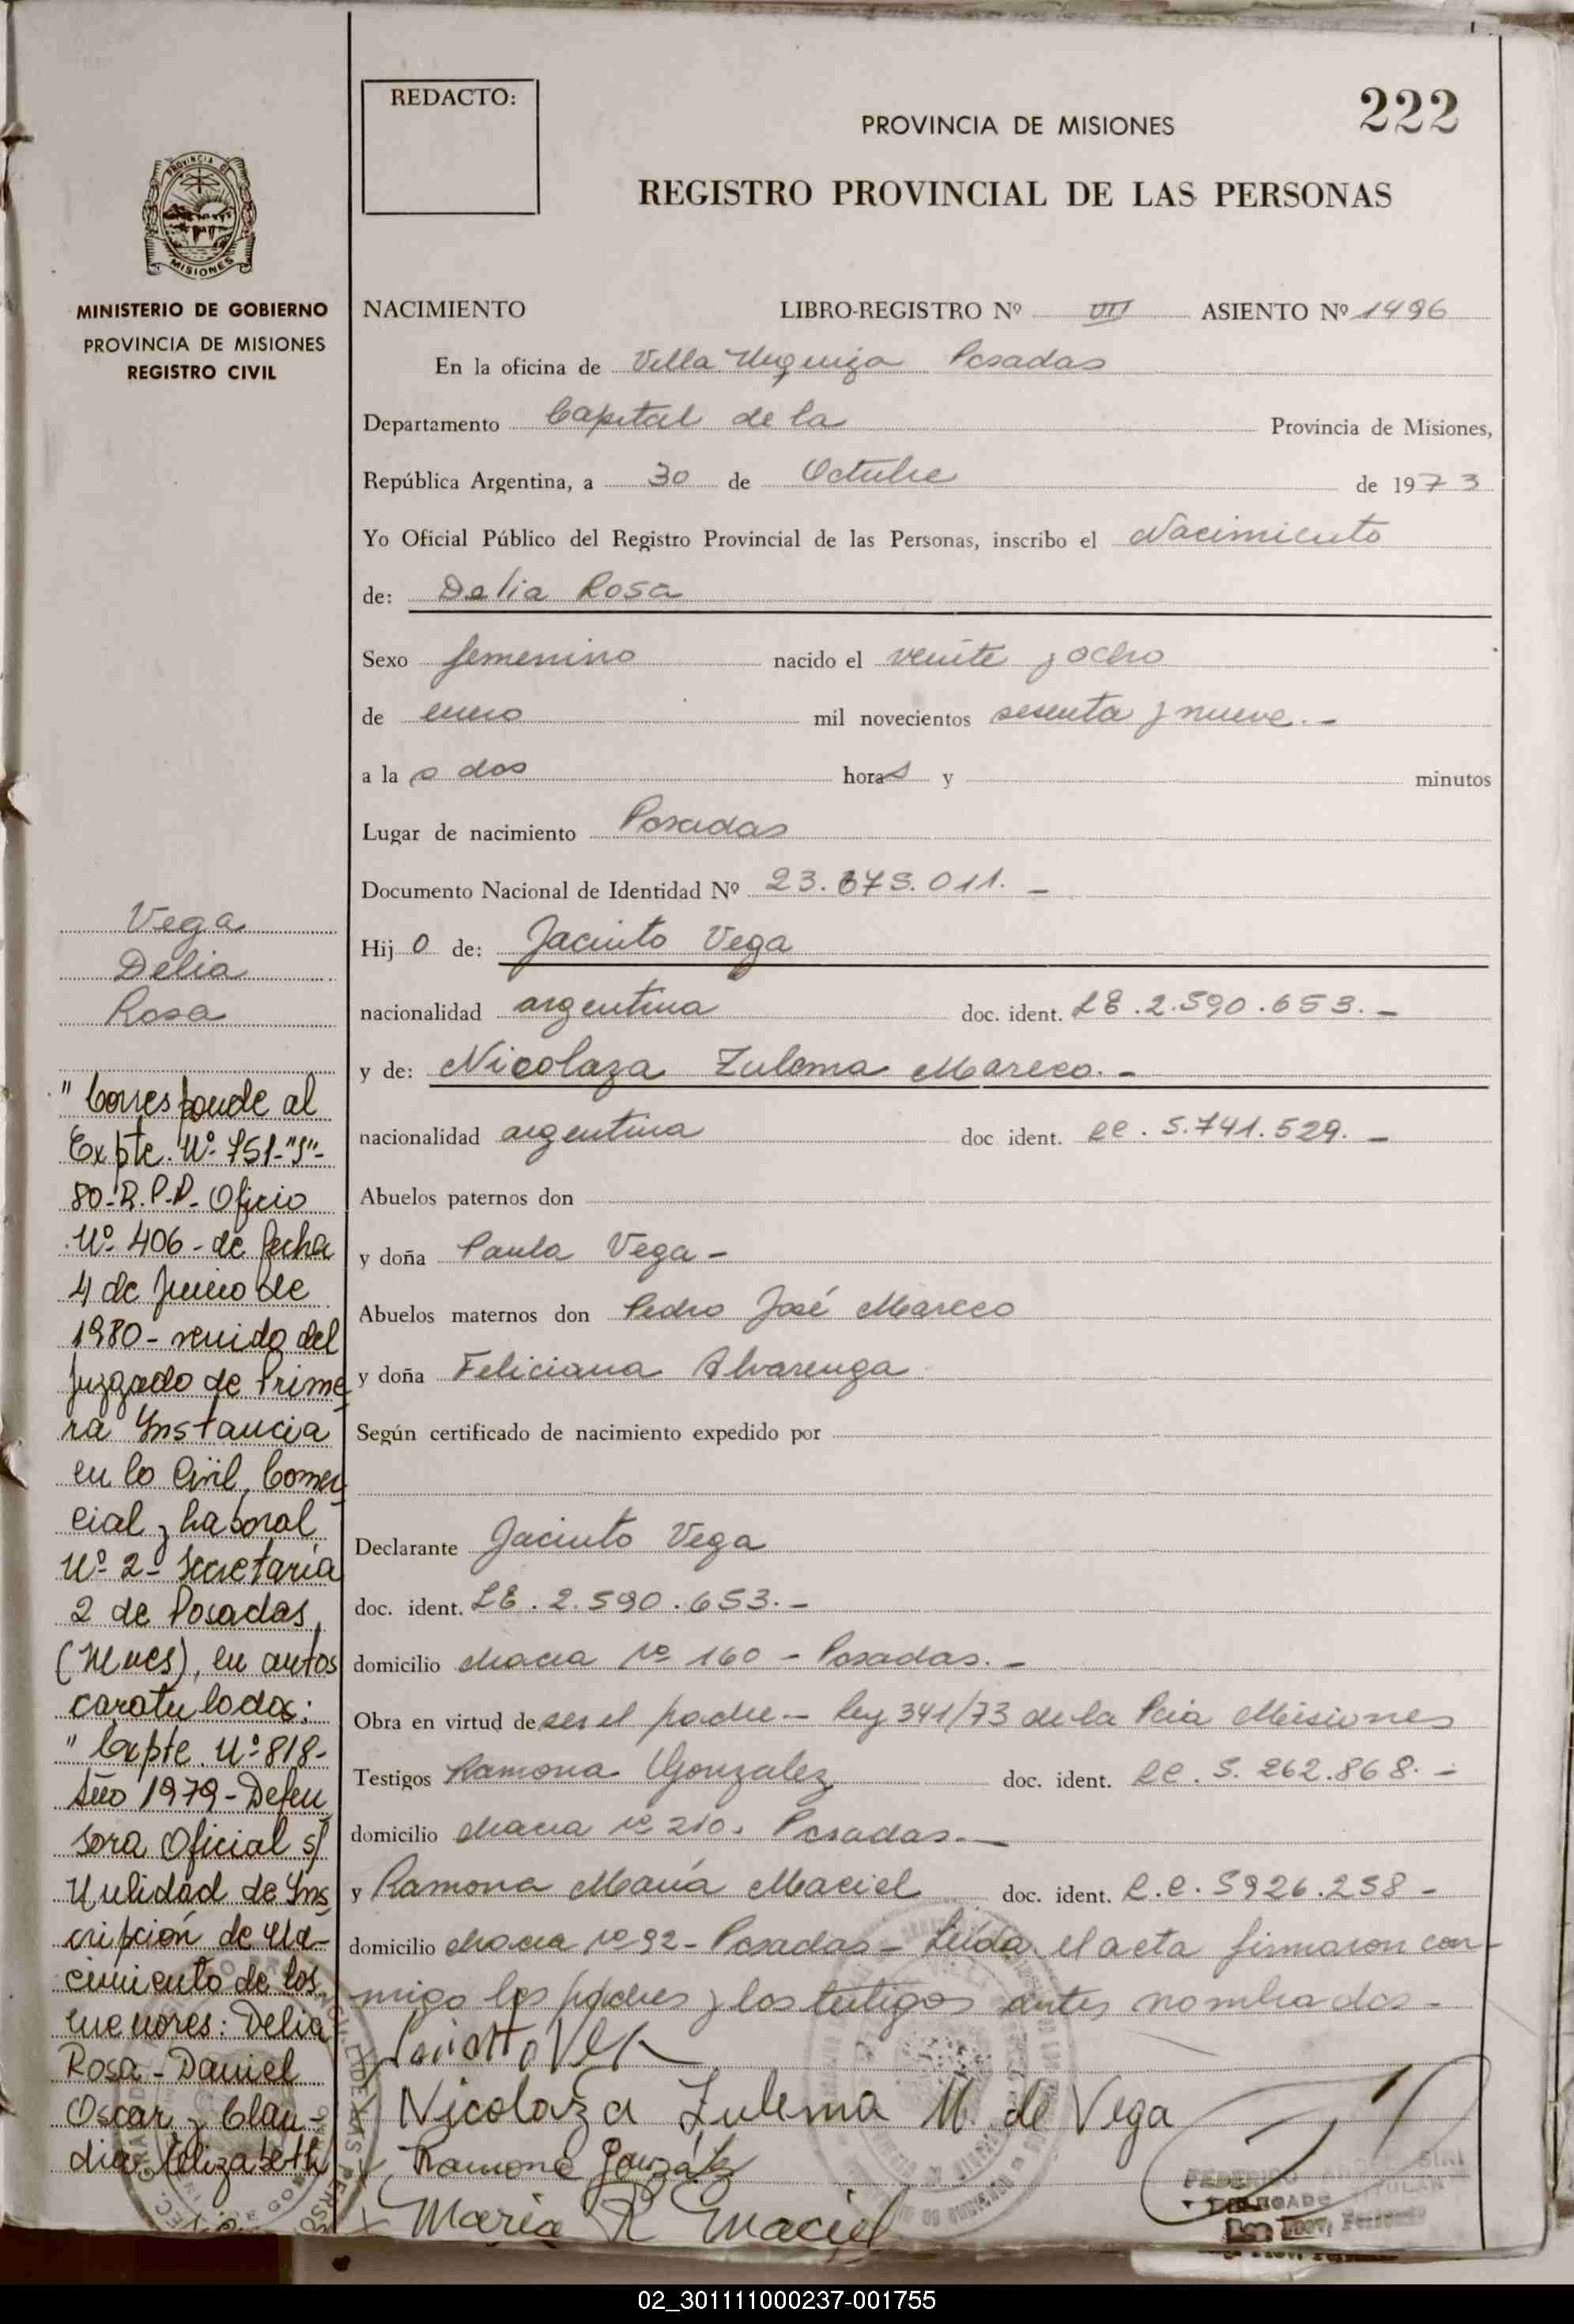 REDACTO:
222
PROVINCIA DE MISIONES
REGISTRO PROVINCIAL DE LAS PERSONAS
PROVINCIA DE
MISIONES
MINISTERIO DE GOBIERNO
PROVINCIA DE MISIONES
REGISTRO CIVIL
NACIMIENTO LIBRO-REGISTRO Nº VIII ASIENTO Nº 1496
En la oficina de Villa Urquiza Posadas
Departamento Capital de la Provincia de Misiones,
República Argentina, a 30 de Octubre de 1973
Yo Oficial Público del Registro Provincial de las Personas, inscribo el Nacimiento
de: Delia Rosa
Sexo femenino nacido el veinte y ocho
de enero mil novecientos sesenta y nueve.-
a la s dos horas y minutos
Lugar de nacimiento Posadas
Documento Nacional de Identidad Nº
Hij o de: Jacinto Vega
nacionalidad argentina doc. ident. LE.2.590.653.-
y de: Nicolaza Zulema Mareco.-
nacionalidad argentina doc ident. LC. 5.741.529.-
Abuelos paternos don
y doña Paula Vega-
Abuelos maternos don Pedro José Mareco
y doña Feliciana Alvarenga
Según certificado de nacimiento expedido por
Declarante Jacinto Vega
doc. ident. LE. 2.590.653.-
domicilio chacra nº 160 - Posadas.-
Obra en virtud de ser el padre- Ley 341/73 de la Pcia Misiones
Testigos Ramona Gonzalez doc. ident. LC. 5.262.868.-
domicilio chacra nº 210. Posadas.-
y Ramona María Maciel doc. ident. L.C. 5926.258-
domicilio chacra nº 92- Posadas- Leída el acta firmaron con-
migo los padres y los testigos antes nombrados-
Nicolaza Zulema M. de Vega
Ramona Gonzále
Maria R Maciel
Vega
Delia
Rosa
"Corresponde al
Expte. Nº 751-"S"-
80-R.P.P. Oficio
Nº 406- de fecha
4 de Junio de
1980- venido del
Juzgado de Prime
ra Instancia
en lo Civil, Comer
cial y Laboral
Nº 2- Secretaría
2 de Posadas,
(Mnes), en autos
caratulados:
"Expte. Nº 818-
Año 1979- Defen
sora Oficial s/
Nulidad de Ins
cripción de Na-
cimiento de los
menores: Delia
Rosa- Daniel
Oscar y Clau-
dia Elizabeth
02_301111000237-001755